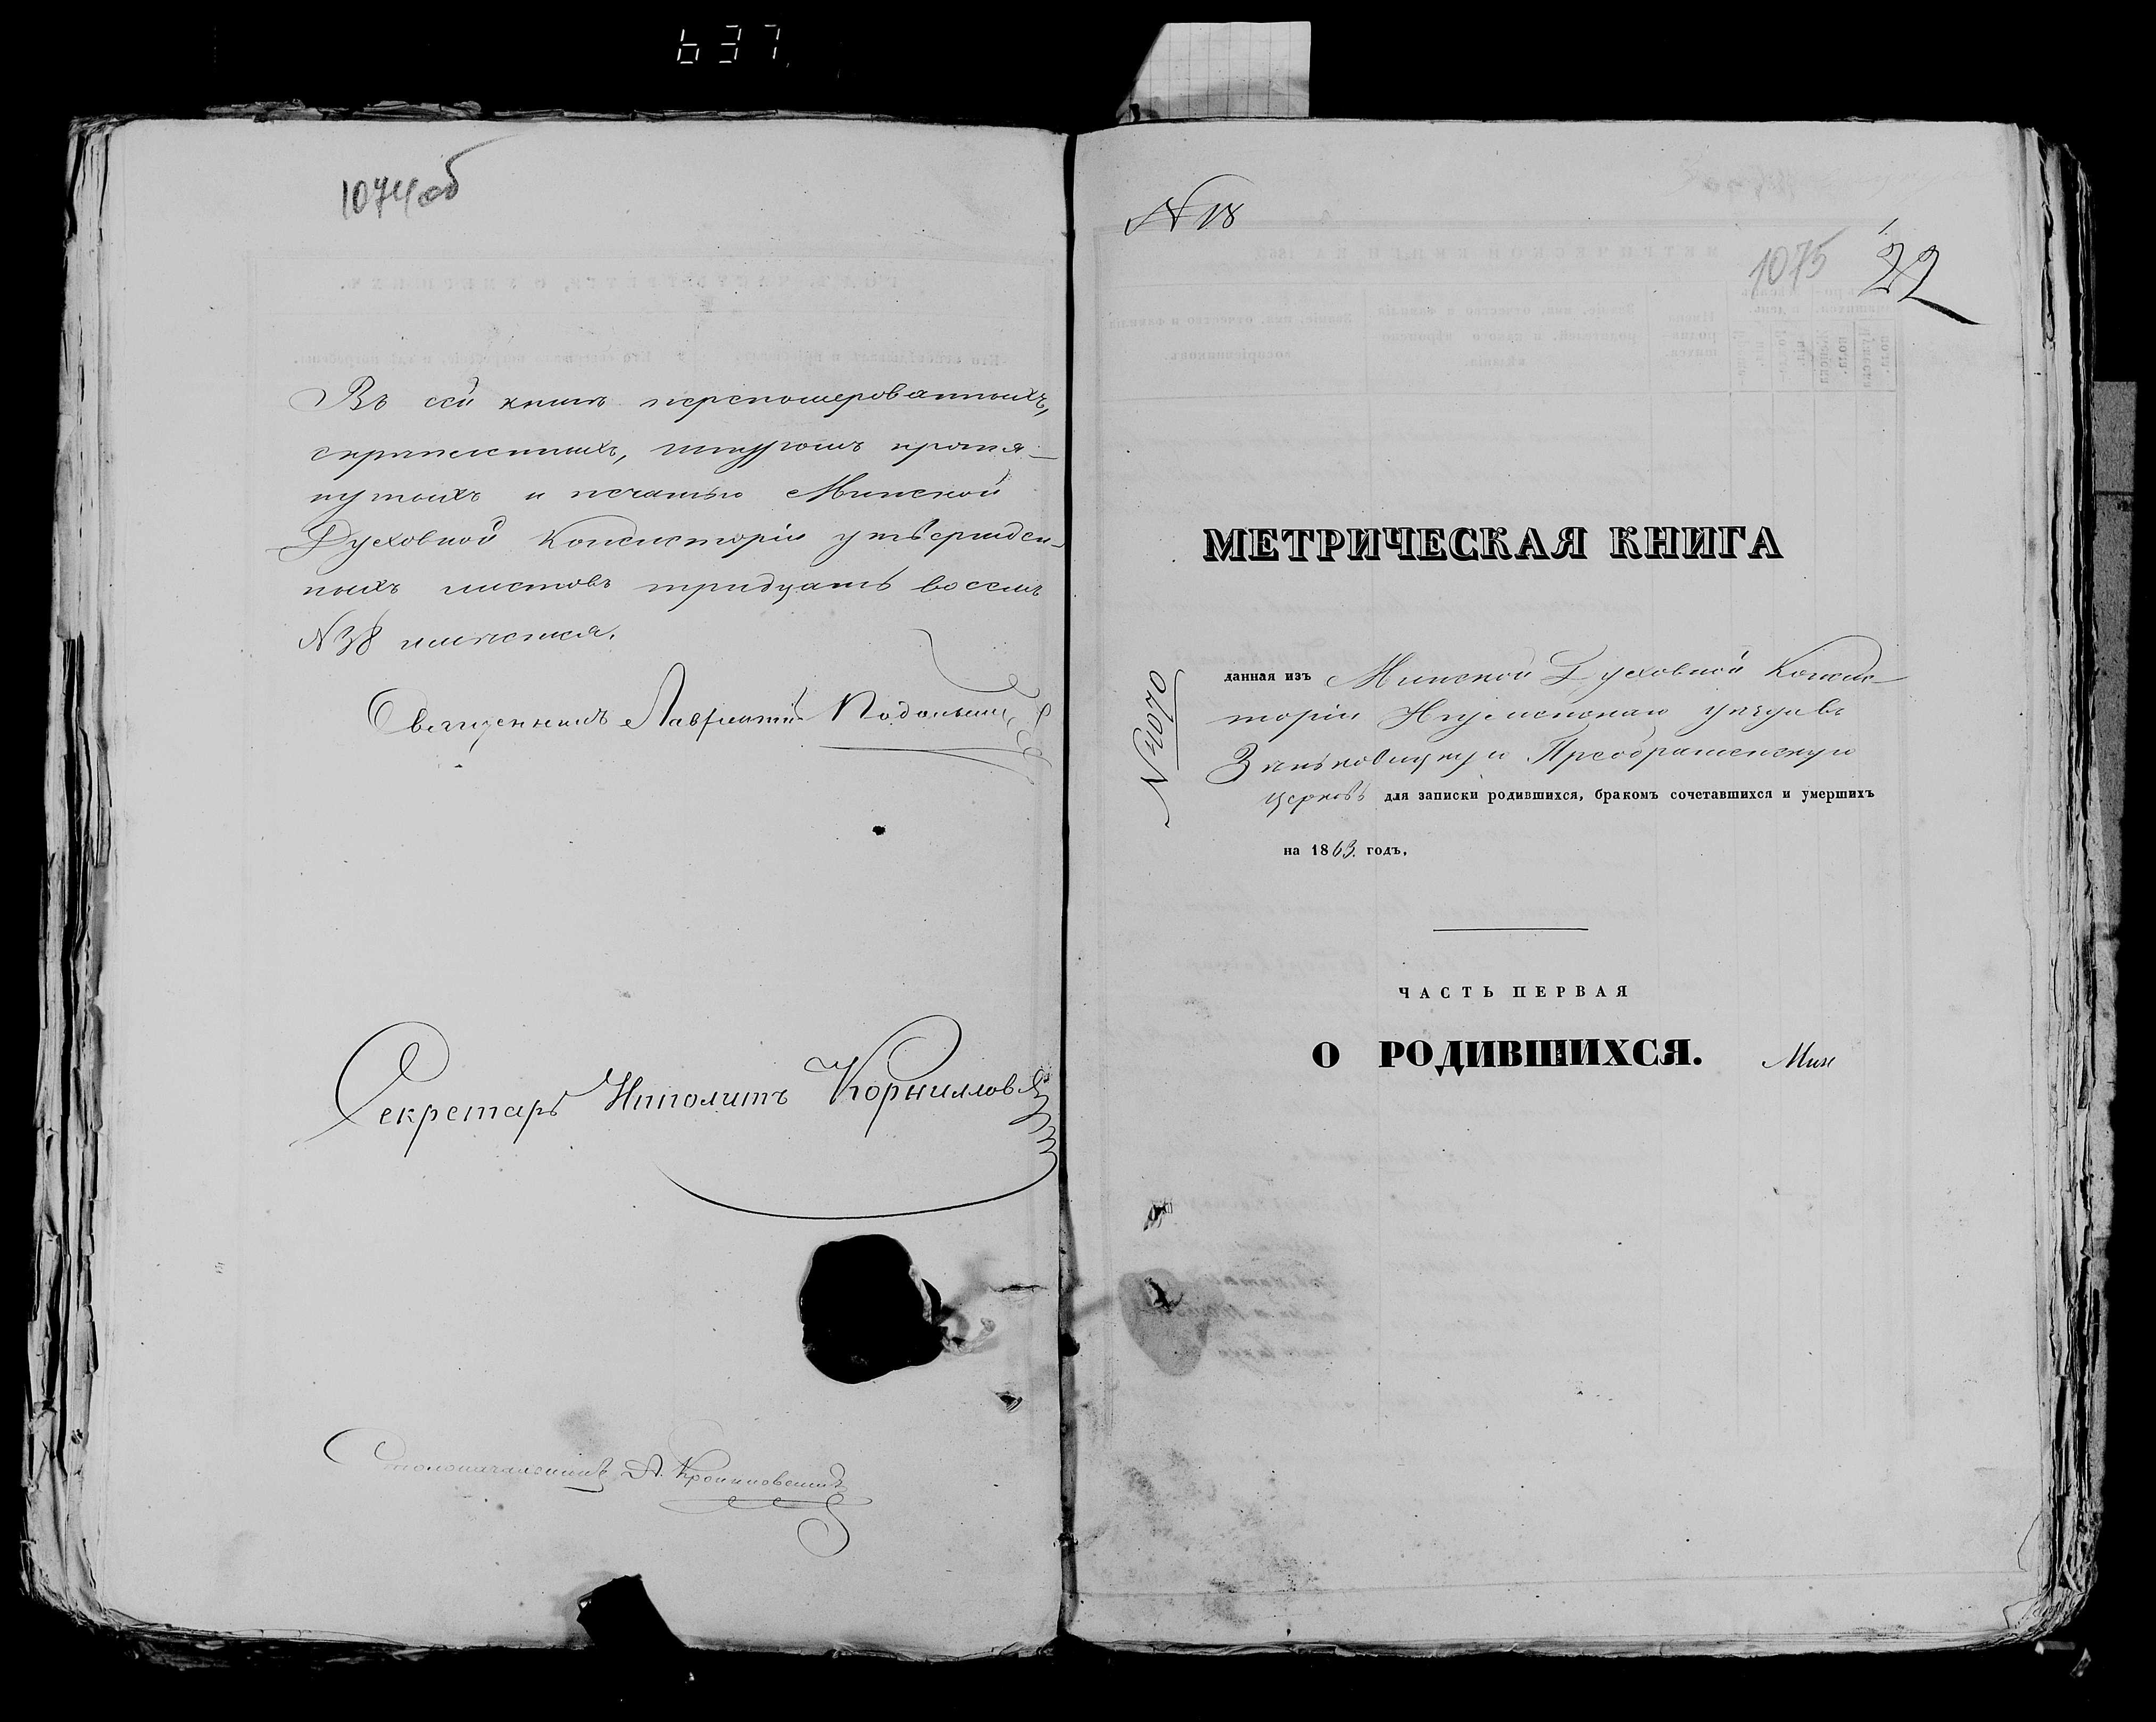 637
1074 об
Въ сей книгѣ перенумерованныхъ,
скрѣпленныхъ, шнуромъ протя-
нутыхъ и печатью Минской
Духовной Консисторіи утвержден-
ныхъ листовъ тридцать восемь
№ 38 имѣется.
Священникъ Лаврентій
Секретарь Иполитъ Корниловъ
Столоначальникъ А.
№ 18
1075
22
МЕТРИЧЕСКАЯ КНИГА
№ 1070
данная изъ Минской Духовной Консис-
торіи Игуменскаго уѣзда въ
Преображенскую
церковь для записки родившихся, бракомъ сочетавшихся и умершихъ
на 1863. годъ.
ЧАСТЬ ПЕРВАЯ
О РОДИВШИХСЯ.